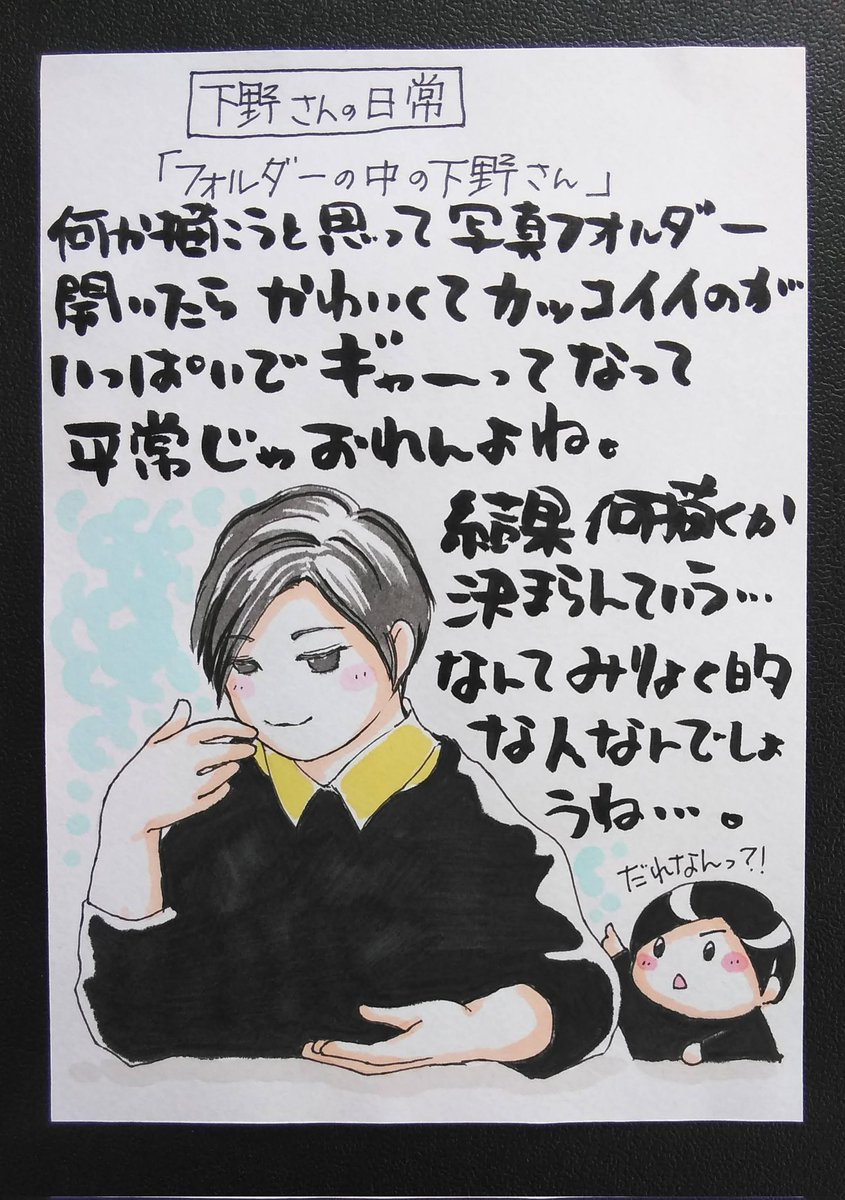 下野さんの日常
「フォルダーの中の下野さん」
何か描こうと思って写真フォルダー
開いたら かわいくてカッコイイのが
いっぱいで ギャーってなって
平常じゃおれんよね。
結果 何描くか
決まらんていう…
なんてみりょく的
な人なんでしょ
うね…。
だれなんっ?!